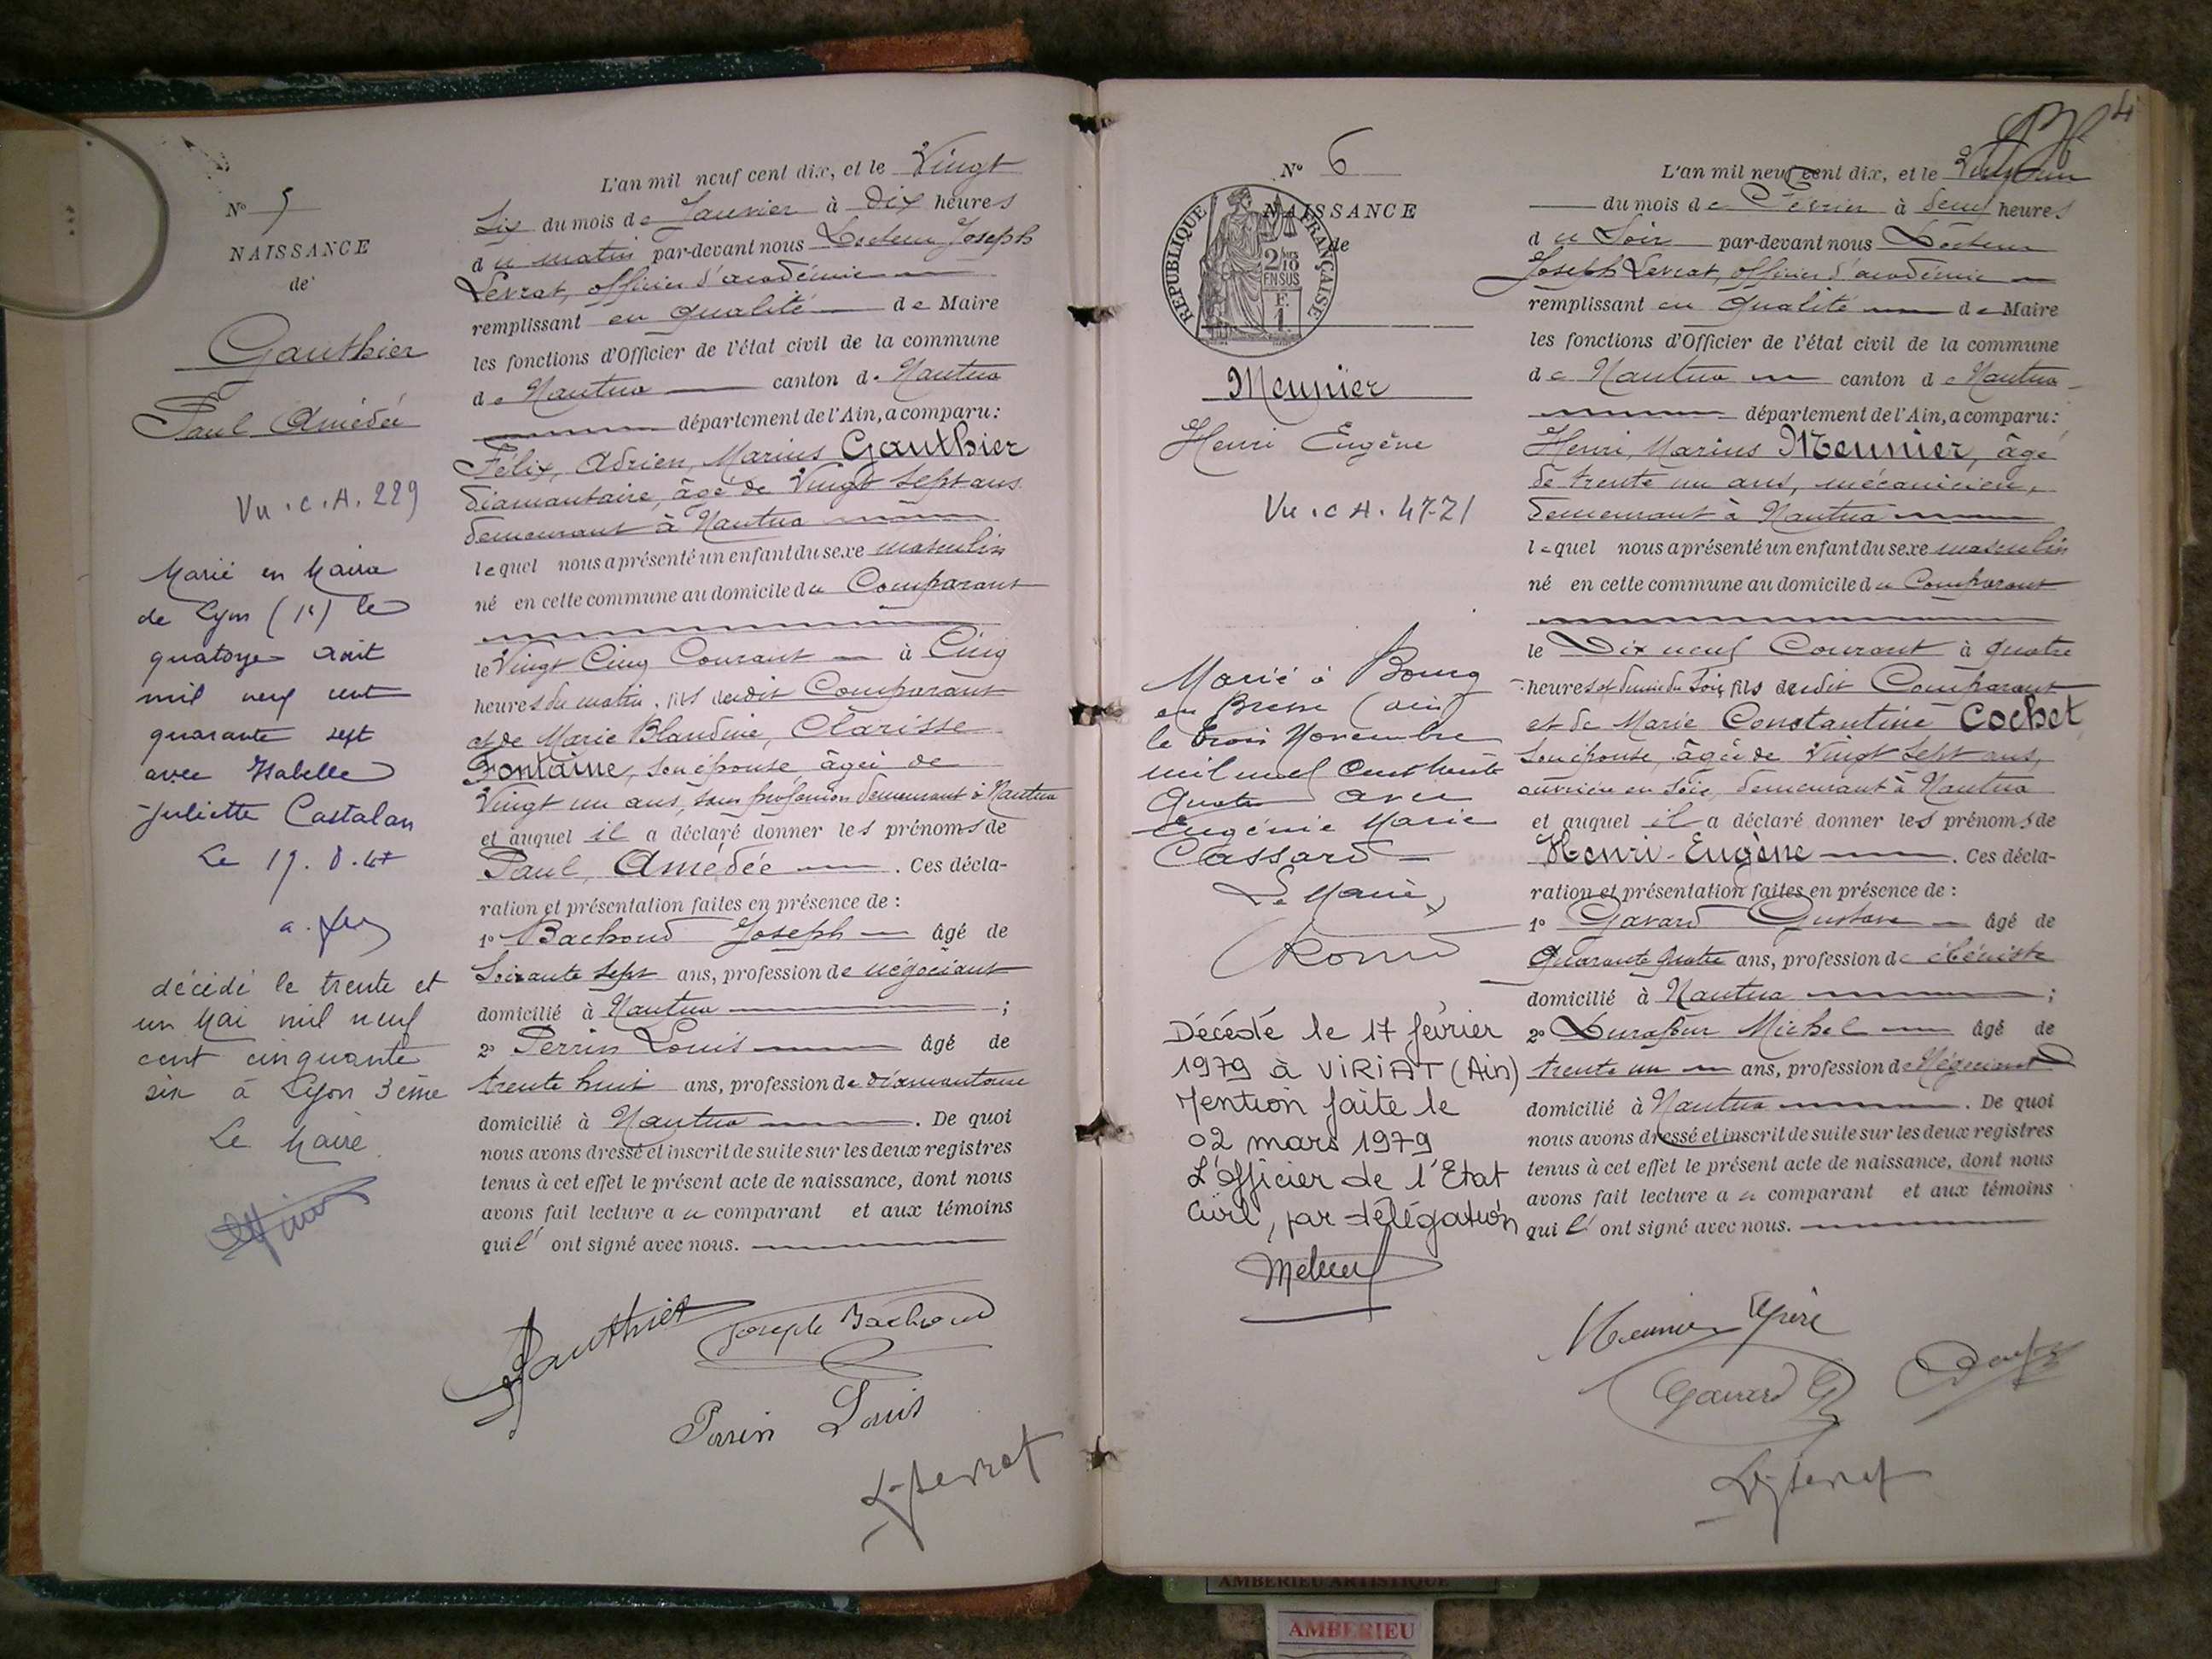 N° 5
NAISSANCE
de
Gauthier
Paul Amédée
Vu . C . A . 229
Marié en Mairie
de Lyon (1e) le
quatorze Août
mil neuf cent
quarante sept
avec Isabelle
Juliette Castalan
Le 19. 8. 47
décédé le trente et
un Mai mil neuf
cent cinquante
six à Lyon 3ème
Le Maire
L'an mil neuf cent dix, et le Vingt
Six du mois de Janvier à Dix heures
du matin par-devant nous Docteur Joseph
Levrat, officier d'académie
remplissant en qualité de Maire
les fonctions d'Officier de l'état civil de la commune
de Nantua canton de Nantua
département de l'Ain, a comparu:
Félix, Adrien, Marius Gauthier
diamantaire, âgé de Vingt sept ans
demeurant à Nantua
lequel nous a présenté un enfant du sexe masculin
né en cette commune au domicile du Comparant
le Vingt Cinq Courant à Cinq
heures du matin, fils dudit Comparant
et de Marie Blandine, Clarisse
Fontaine, son épouse âgée de
Vingt un ans, sans profession demeurant à Nantua
et auquel il a déclaré donner les prénoms de
Paul, Amédée . Ces décla-
ration et présentation faites en présence de :
1° Bachoud Joseph âgé de
Soixante sept ans, profession de négociant
domicilié à Nantua ;
2° Perrin Louis âgé de
trente huit ans, profession de diamantaire
domicilié à Nantua . De quoi
nous avons dressé et inscrit de suite sur les deux registres
tenus à cet effet le présent acte de naissance, dont nous
avons fait lecture au comparant et aux témoins
qui l' ont signé avec nous.
Gauthier Joseph Bachoud
Perrin Louis
Levrat
4
N° 6
NAISSANCE
de
RÉPUBLIQUE FRANÇAISE
2/10
EN SUS
F.
1
Meunier
Henri Eugène
Vu . C A . 47-21
Marié à Bourg
en Bresse (Ain)
le trois Novembre
mil neuf cent trente
quatre avec
Eugénie Marie
Classard
Le Maire,
Décédé le 17 février
1979 à VIRIAT (Ain)
Mention faite le
02 mars 1979
L'officier de l'Etat
Civil, par délégation
L'an mil neuf cent dix, et le Vingt un
du mois de Février à deux heures
du Soir par-devant nous Docteur
Joseph Levrat, officier d'académie
remplissant en qualité de Maire
les fonctions d'Officier de l'état civil de la commune
de Nantua canton de Nantua
département de l'Ain, a comparu:
Henri, Marius Meunier, âgé
de trente un ans, mécanicien,
demeurant à Nantua
lequel nous a présenté un enfant du sexe masculin
né en cette commune au domicile du Comparant
le Dix neuf Courant à quatre
heures et demie du Soir, fils dudit Comparant
et de Marie Constantine Cochet
son épouse, âgée de Vingt sept ans,
ouvrière en soie, demeurant à Nantua
et auquel il a déclaré donner les prénoms de
Henri-Eugène . Ces décla-
ration et présentation faites en présence de :
1° Gavard Gustave âgé de
Quarante quatre ans, profession de ébéniste
domicilié à Nantua ;
2° Durafour Michel âgé de
trente un ans, profession de Négociant
domicilié à Nantua . De quoi
nous avons dressé et inscrit de suite sur les deux registres
tenus à cet effet le présent acte de naissance, dont nous
avons fait lecture au comparant et aux témoins
qui l' ont signé avec nous.
Meunier père
Gavard G
Levrat
AMBERIEU ARTISTIQUE
AMBERIEU